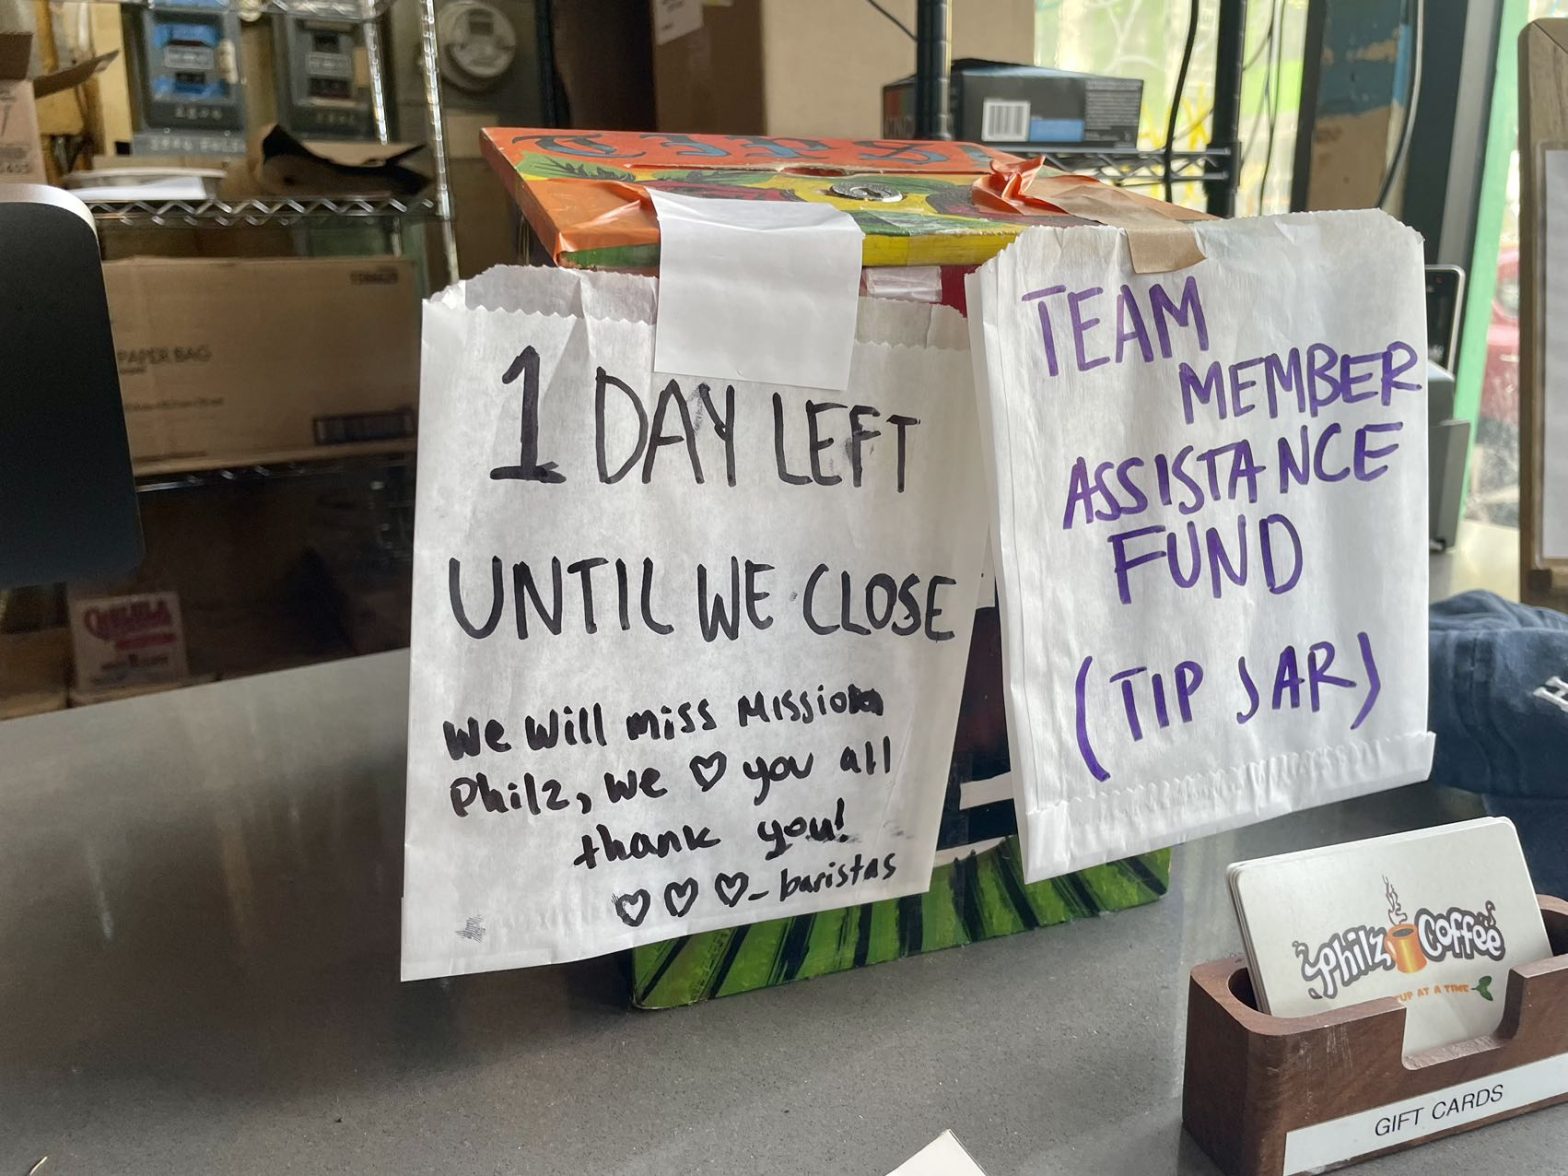 1 DAY LEFT
UNTIL WE CLOSE
we will miss Mission
Philz, we ♡ you all
thank you!
♡♡♡-baristas
TEAM
MEMBER
ASSISTANCE
FUND
(TIP JAR)
PAPER BAG
Philz Coffee
UP AT A TIME
GIFT CARDS
TIPS